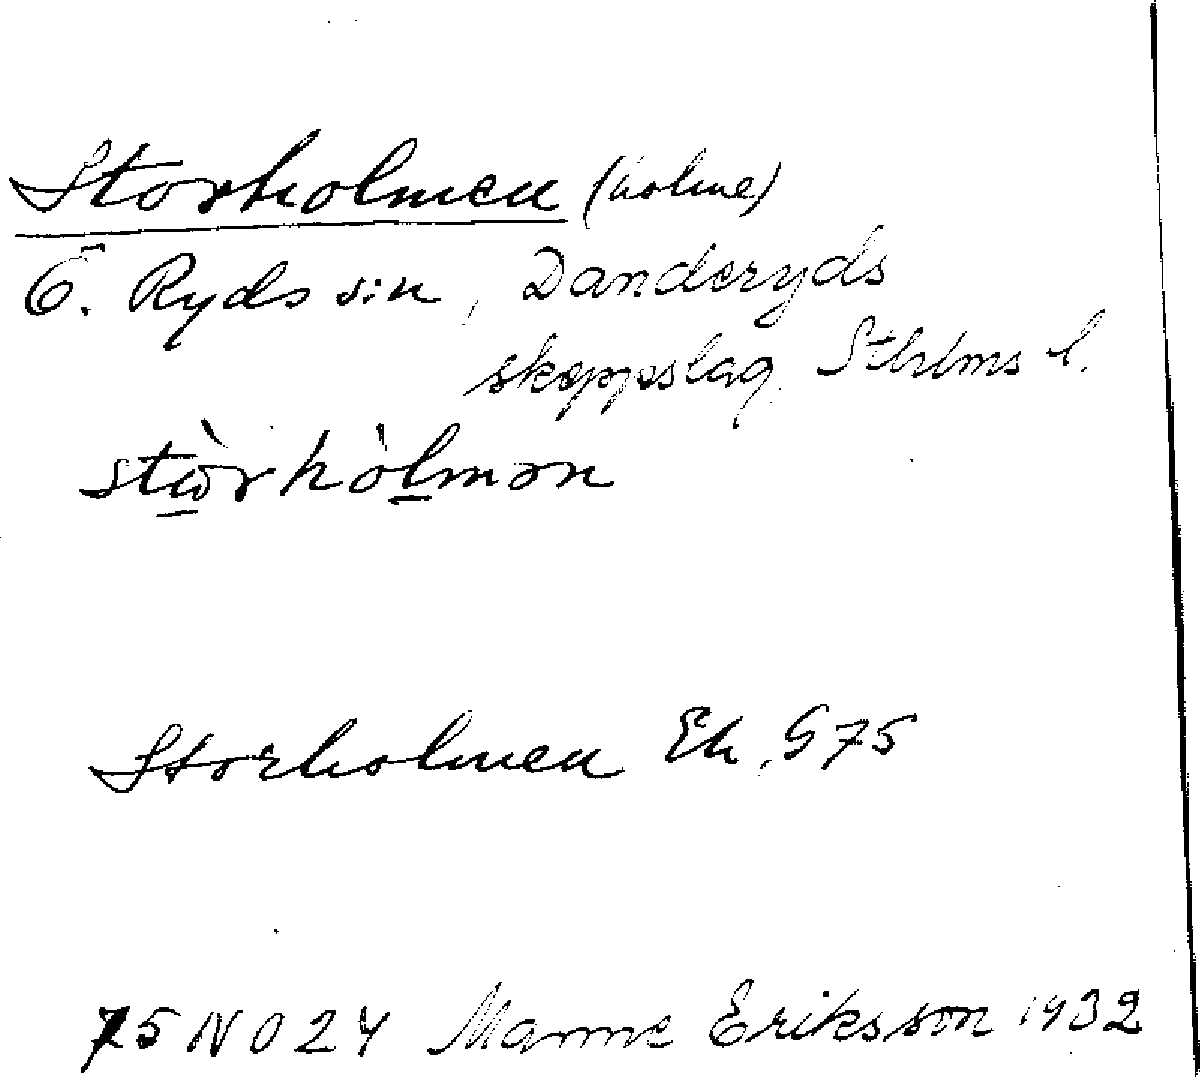 Storholmen (holme)
Ö. Ryds sn, Danderyds
skeppslag, Sthlms l.
stωrhòlmən
Storholmen Ek. S 75
75 NO 24 Manne Eriksson 1932